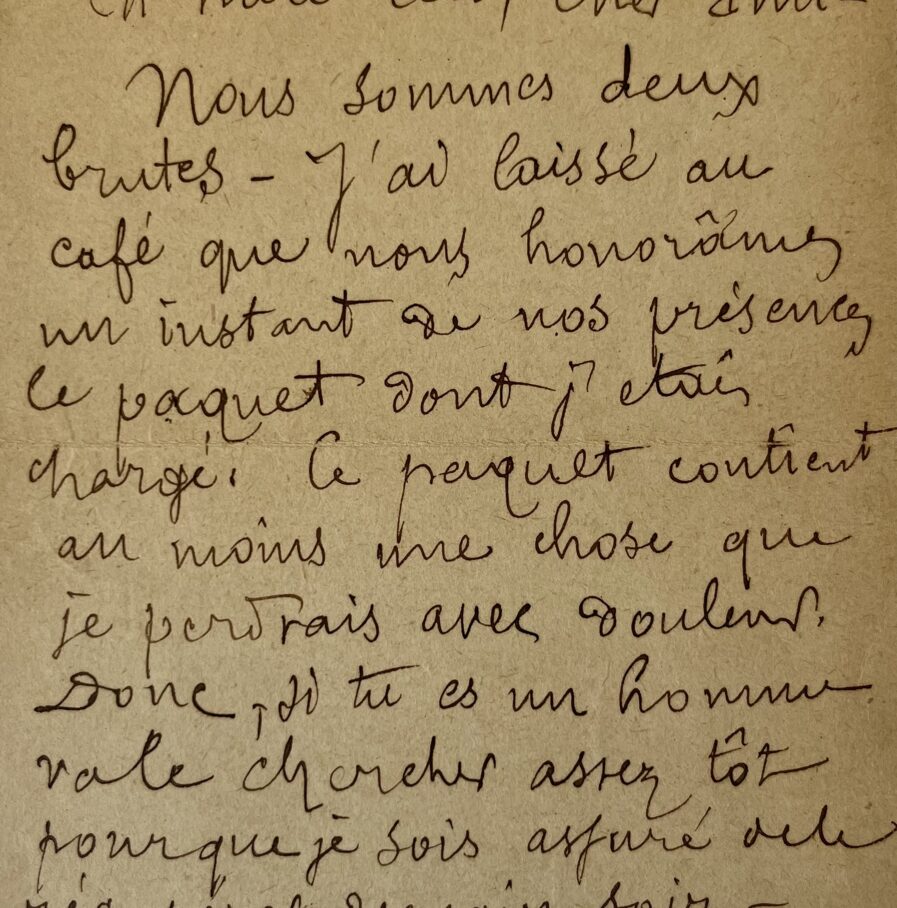 cher
Nous sommes deux
brutes - J'ai laissé au
café que nous honorâmes
un instant de nos présences
le paquet dont j'étais
chargé. Ce paquet contient
au moins une chose que
je perdrais avec douleur.
Donc, si tu es un homme
va le chercher assez tôt
pour que je sois assuré de le
soir -